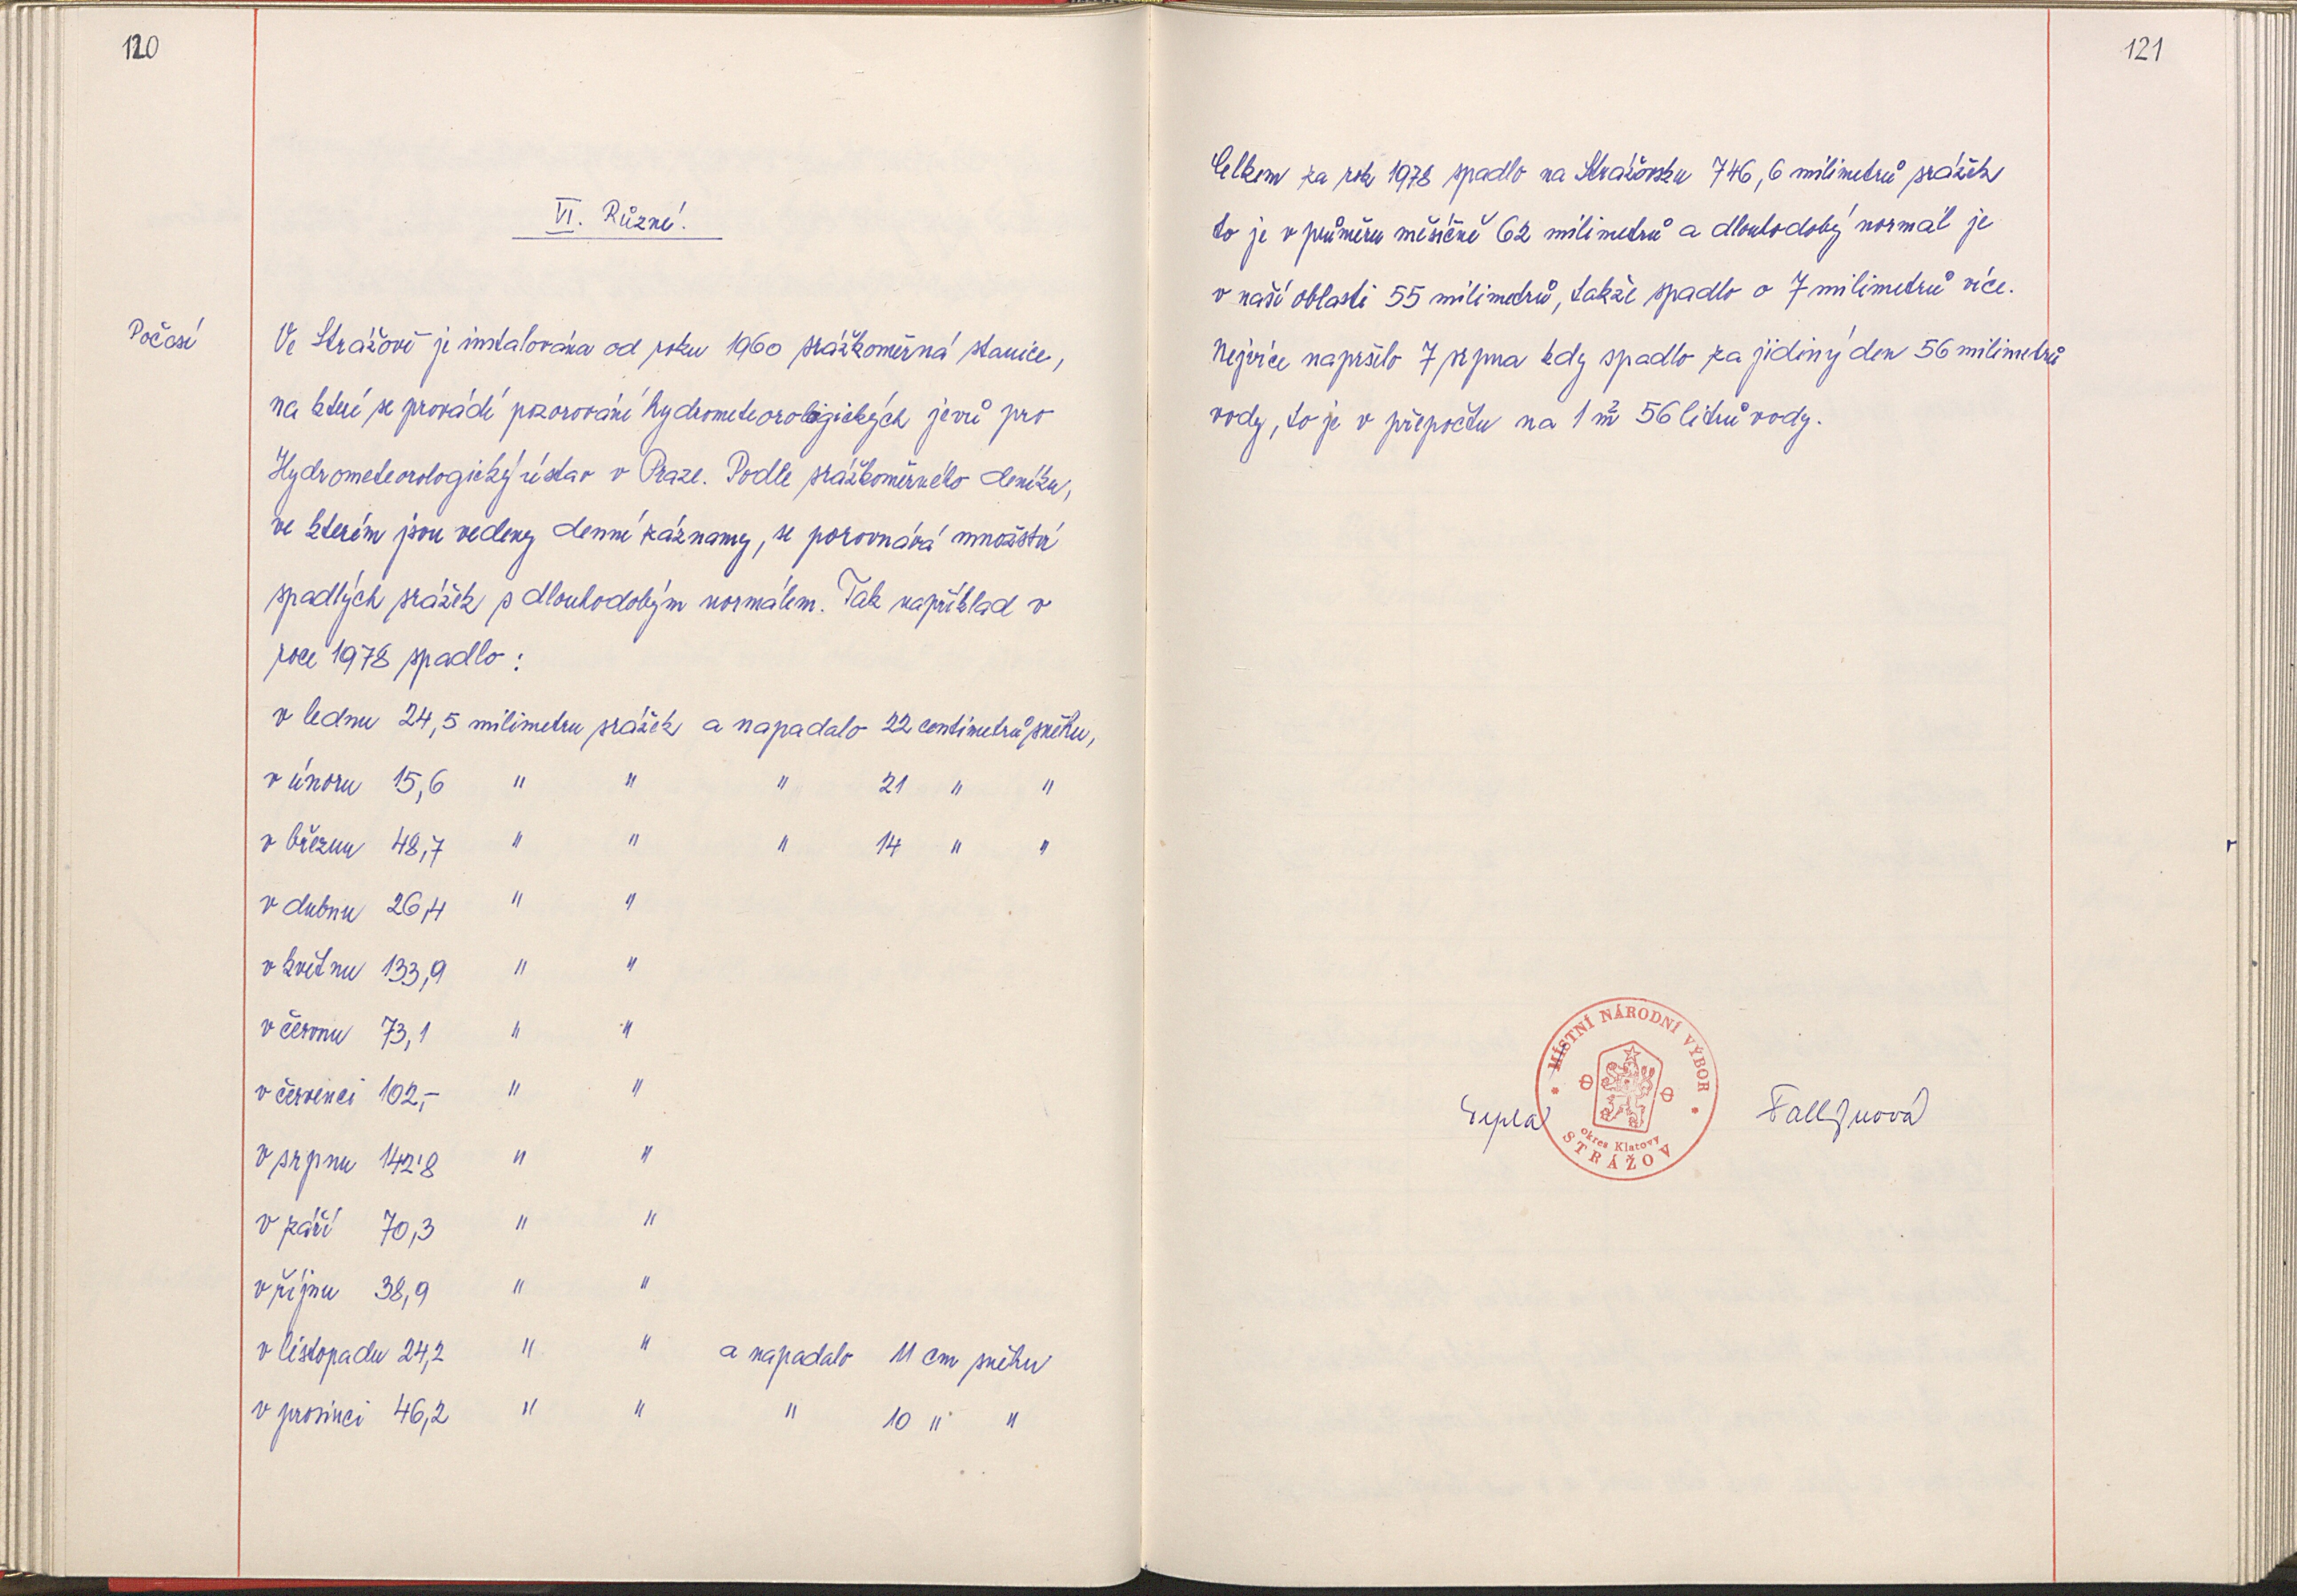 120
VI. Různé.
Počasí
Ve Strážově je instalována od roku 1960 srážkoměrná stanice,
na které se provádí pozorování hydrometeorologických jevů pro
Hydrometeorologický ústav v Praze. Podle srážkoměrného deníku,
ve kterém jsou vedeny denní záznamy, se porovnává množství
spadlých srážek s dlouhodobým normálem. Tak například v
roce 1978 spadlo:
v lednu 24,5 milimetru srážek a napadalo 22 centimetrů sněhu,
v únoru 15,6 " " " 21 " "
v březnu 48,7 " " " 14 " "
v dubnu 26,4 " "
v květnu 133,9 " "
v červnu 73,1 " "
v červenci 102,- " "
v srpnu 142'8 " "
v září 70,3 " "
v říjnu 38,9 " "
v listopadu 24,2 " " a napadalo 11 cm sněhu
v prosinci 46,2 " " " 10 " "
121
Celkem za rok 1978 spadlo na Strážovsku 746,6 milimetrů srážek
to je v průměru měsíčně 62 milimetrů a dlouhodobý normál je
v naší oblasti 55 milimetrů, takže spadlo o 7 milimetrů více.
Nejvíce napršelo 7 srpna kdy spadlo za jediný den 56 milimetrů
vody, to je v přepočtu na 1 m² 56 litrů vody.
MÍSTNÍ NÁRODNÍ VÝBOR
okres Klatovy
STRÁŽOV